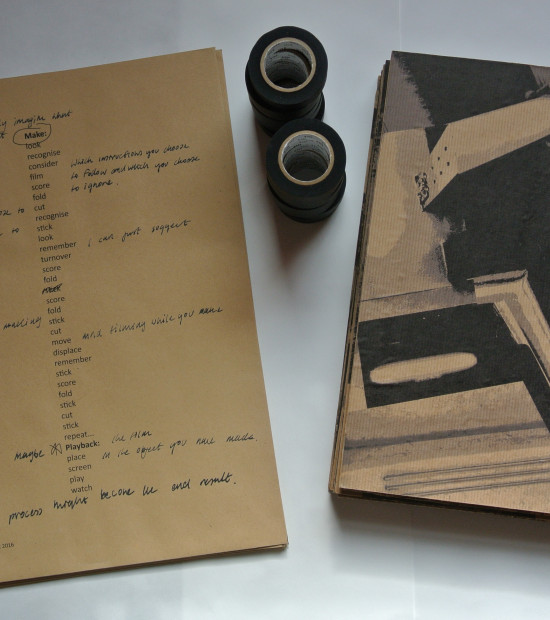 imagine what
Make:
look
recognise
consider which instructions you choose
film to follow and which you choose
score to ignore.
fold
cut
recognise
stick
look
remember i can just suggest
turnover
score
fold
score
fold
making stick
cut
move while you make
displace
remember
stick
score
fold
stick
cut
stick
repeat...
maybe Playback: the film
place in the object you have made.
screen
play
watch
process might become the end result.